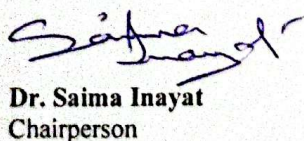 Saima
Inayat
Dr. Saima Inayat
Chairperson